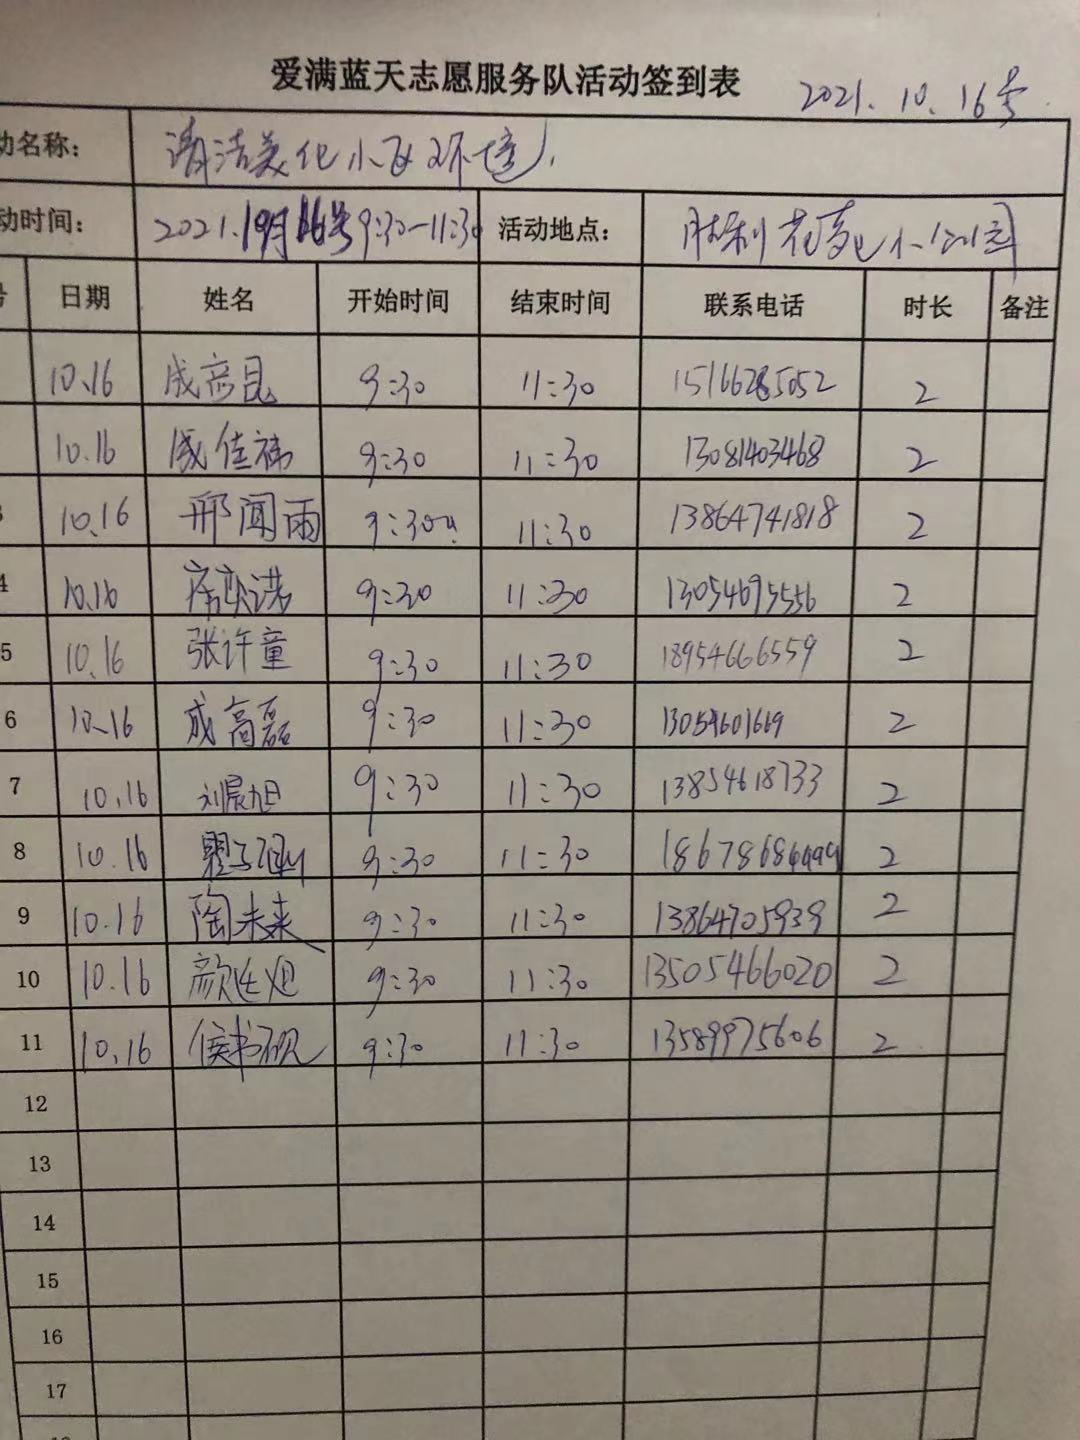 爱满蓝天志愿服务队活动签到表 2021.10.16号
动名称: 清洁美化小区环境
动时间: 2021.10月16号9:30-11:30 活动地点: 胜利花苑小公园
号 日期 姓名 开始时间 结束时间 联系电话 时长 备注
10.16 成彦昆 9:30 11:30 15166285052 2
10.16 成佳祎 9:30 11:30 13081403468 2
3 10.16 邢闻雨 9:30 11:30 13864741818 2
4 10.16 9:30 11:30 13054695556 2
5 10.16 张许童 9:30 11:30 18954666559 2
6 10.16 成高磊 9:30 11:30 13054601669 2
7 10.16 刘晨旭 9:30 11:30 13854618733 2
8 10.16 9:30 11:30 2
9 10.16 陶未来 9:30 11:30 13864705939 2
10 10.16 9:30 11:30 13505466020 2
11 10.16 侯书砚 9:30 11:30 13589975606 2
12
13
14
15
16
17